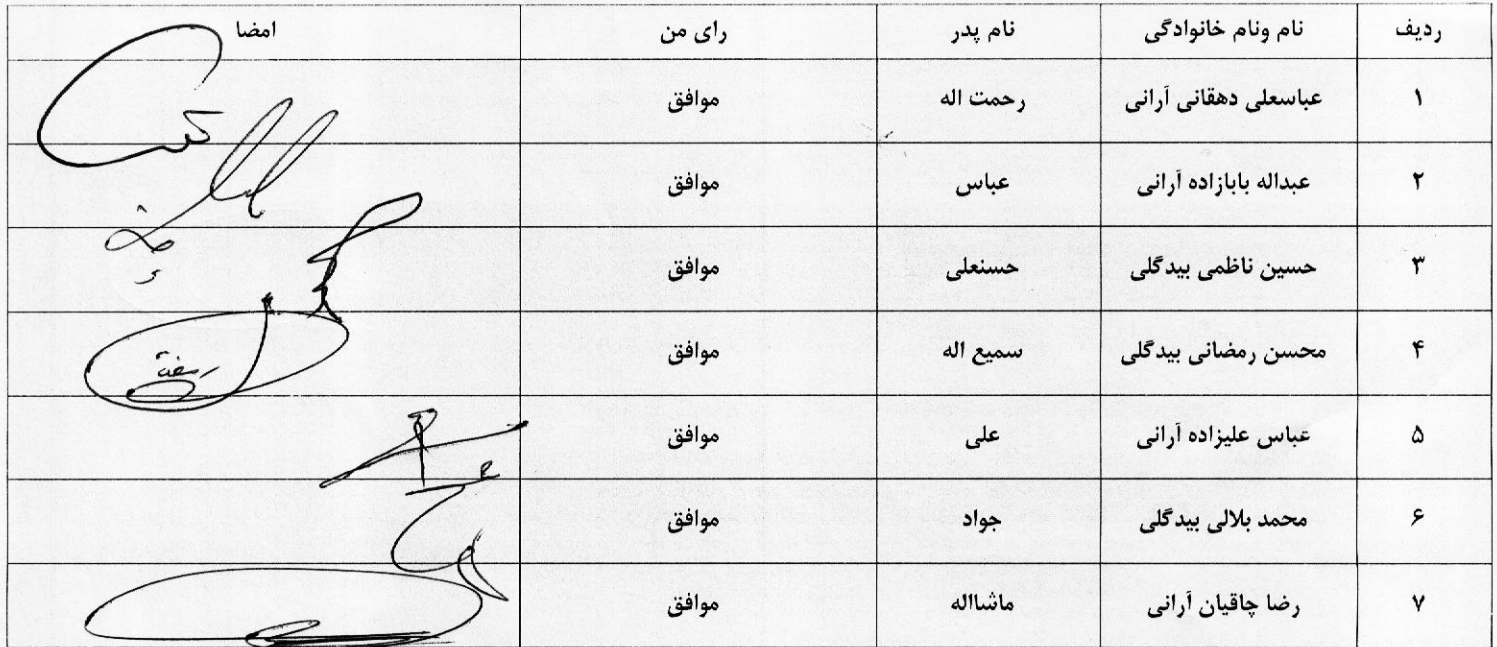 ردیف نام ونام خانوادگی نام پدر رای من امضا
۱ عباسعلی دهقانی آرانی رحمت اله موافق
۲ عبداله بابازاده آرانی عباس موافق
۳ حسین ناظمی بیدگلی حسنعلی موافق
۴ محسن رمضانی بیدگلی سمیع اله موافق
۵ عباس علیزاده آرانی علی موافق
۶ محمد بلالی بیدگلی جواد موافق
۷ رضا چاقیان آرانی ماشااله موافق